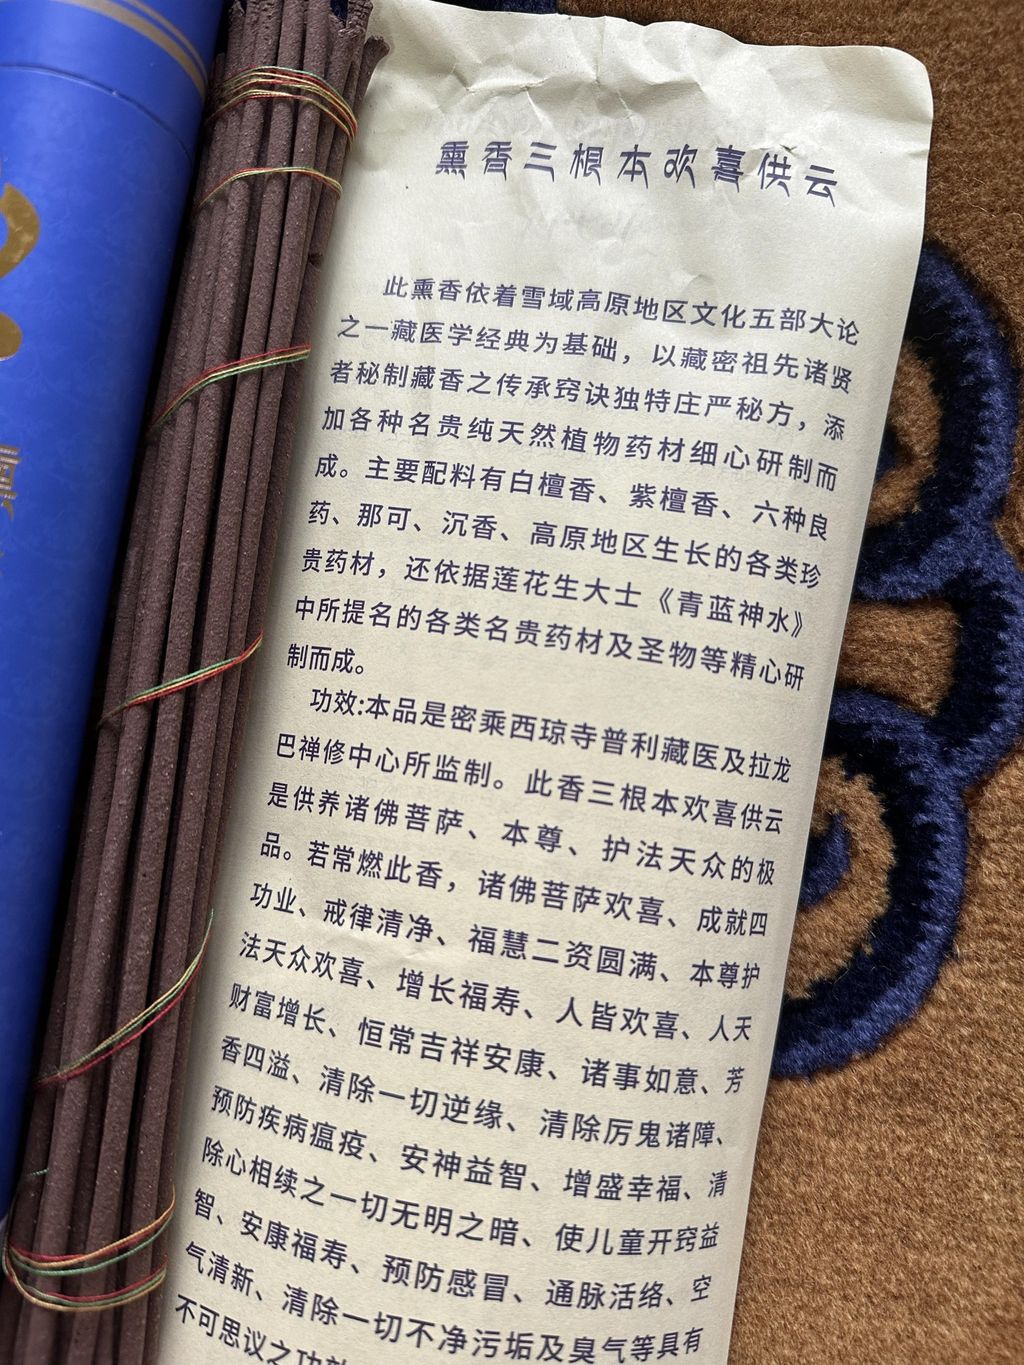 熏香三根本欢喜供云
此熏香依着雪域高原地区文化五部大论
之一藏医学经典为基础，以藏密祖先诸贤
者秘制藏香之传承窍诀独特庄严秘方，添
加各种名贵纯天然植物药材细心研制而
成。主要配料有白檀香、紫檀香、六种良
药、那可、沉香、高原地区生长的各类珍
贵药材，还依据莲花生大士《青蓝神水》
中所提名的各类名贵药材及圣物等精心研
制而成。
功效:本品是密乘西琼寺普利藏医及拉龙
巴禅修中心所监制。此香三根本欢喜供云
是供养诸佛菩萨、本尊、护法天众的极
品。若常燃此香，诸佛菩萨欢喜、成就四
功业、戒律清净、福慧二资圆满、本尊护
法天众欢喜、增长福寿、人皆欢喜、人天
财富增长、恒常吉祥安康、诸事如意、芳
香四溢、清除一切逆缘、清除厉鬼诸障、
预防疾病瘟疫、安神益智、增盛幸福、清
除心相续之一切无明之暗、使儿童开窍益
智、安康福寿、预防感冒、通脉活络、空
气清新、清除一切不净污垢及臭气等具有
不可思议之功效